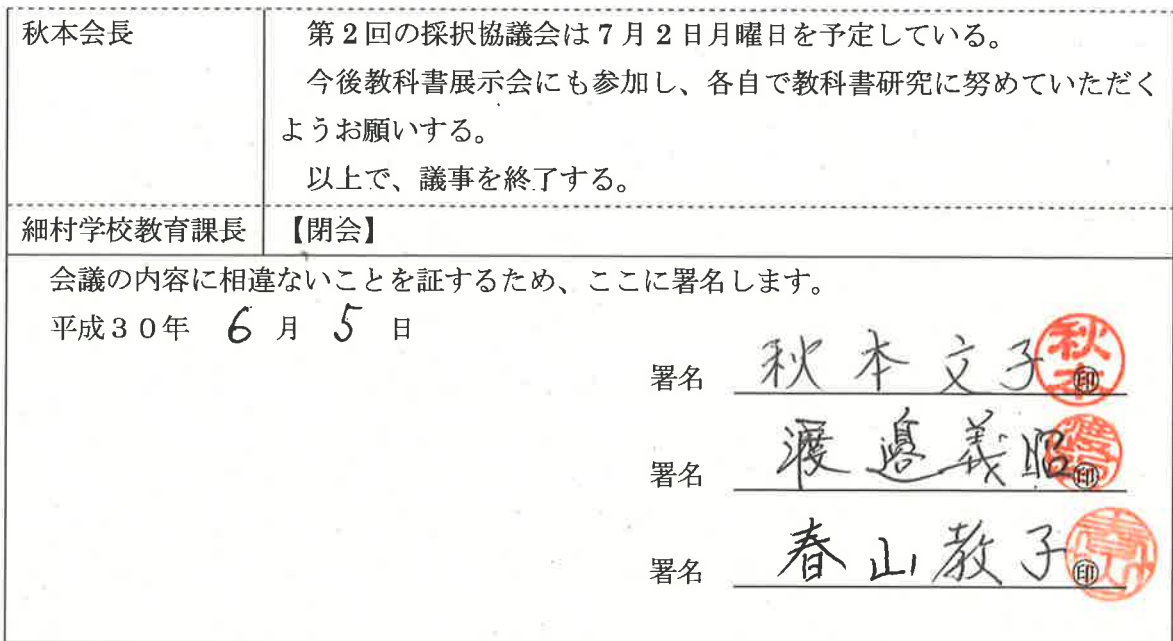 秋本会長
第2回の採択協議会は7月2日月曜日を予定している。
今後教科書展示会にも参加し、各自で教科書研究に努めていただく
ようお願いする。
以上で、議事を終了する。
細村学校教育課長
【閉会】
会議の内容に相違ないことを証するため、ここに署名します。
平成30年 6 月 5 日
署名 秋本文子 ㊞
秋本
署名 渡邉義昭 ㊞
署名 春山教子 ㊞